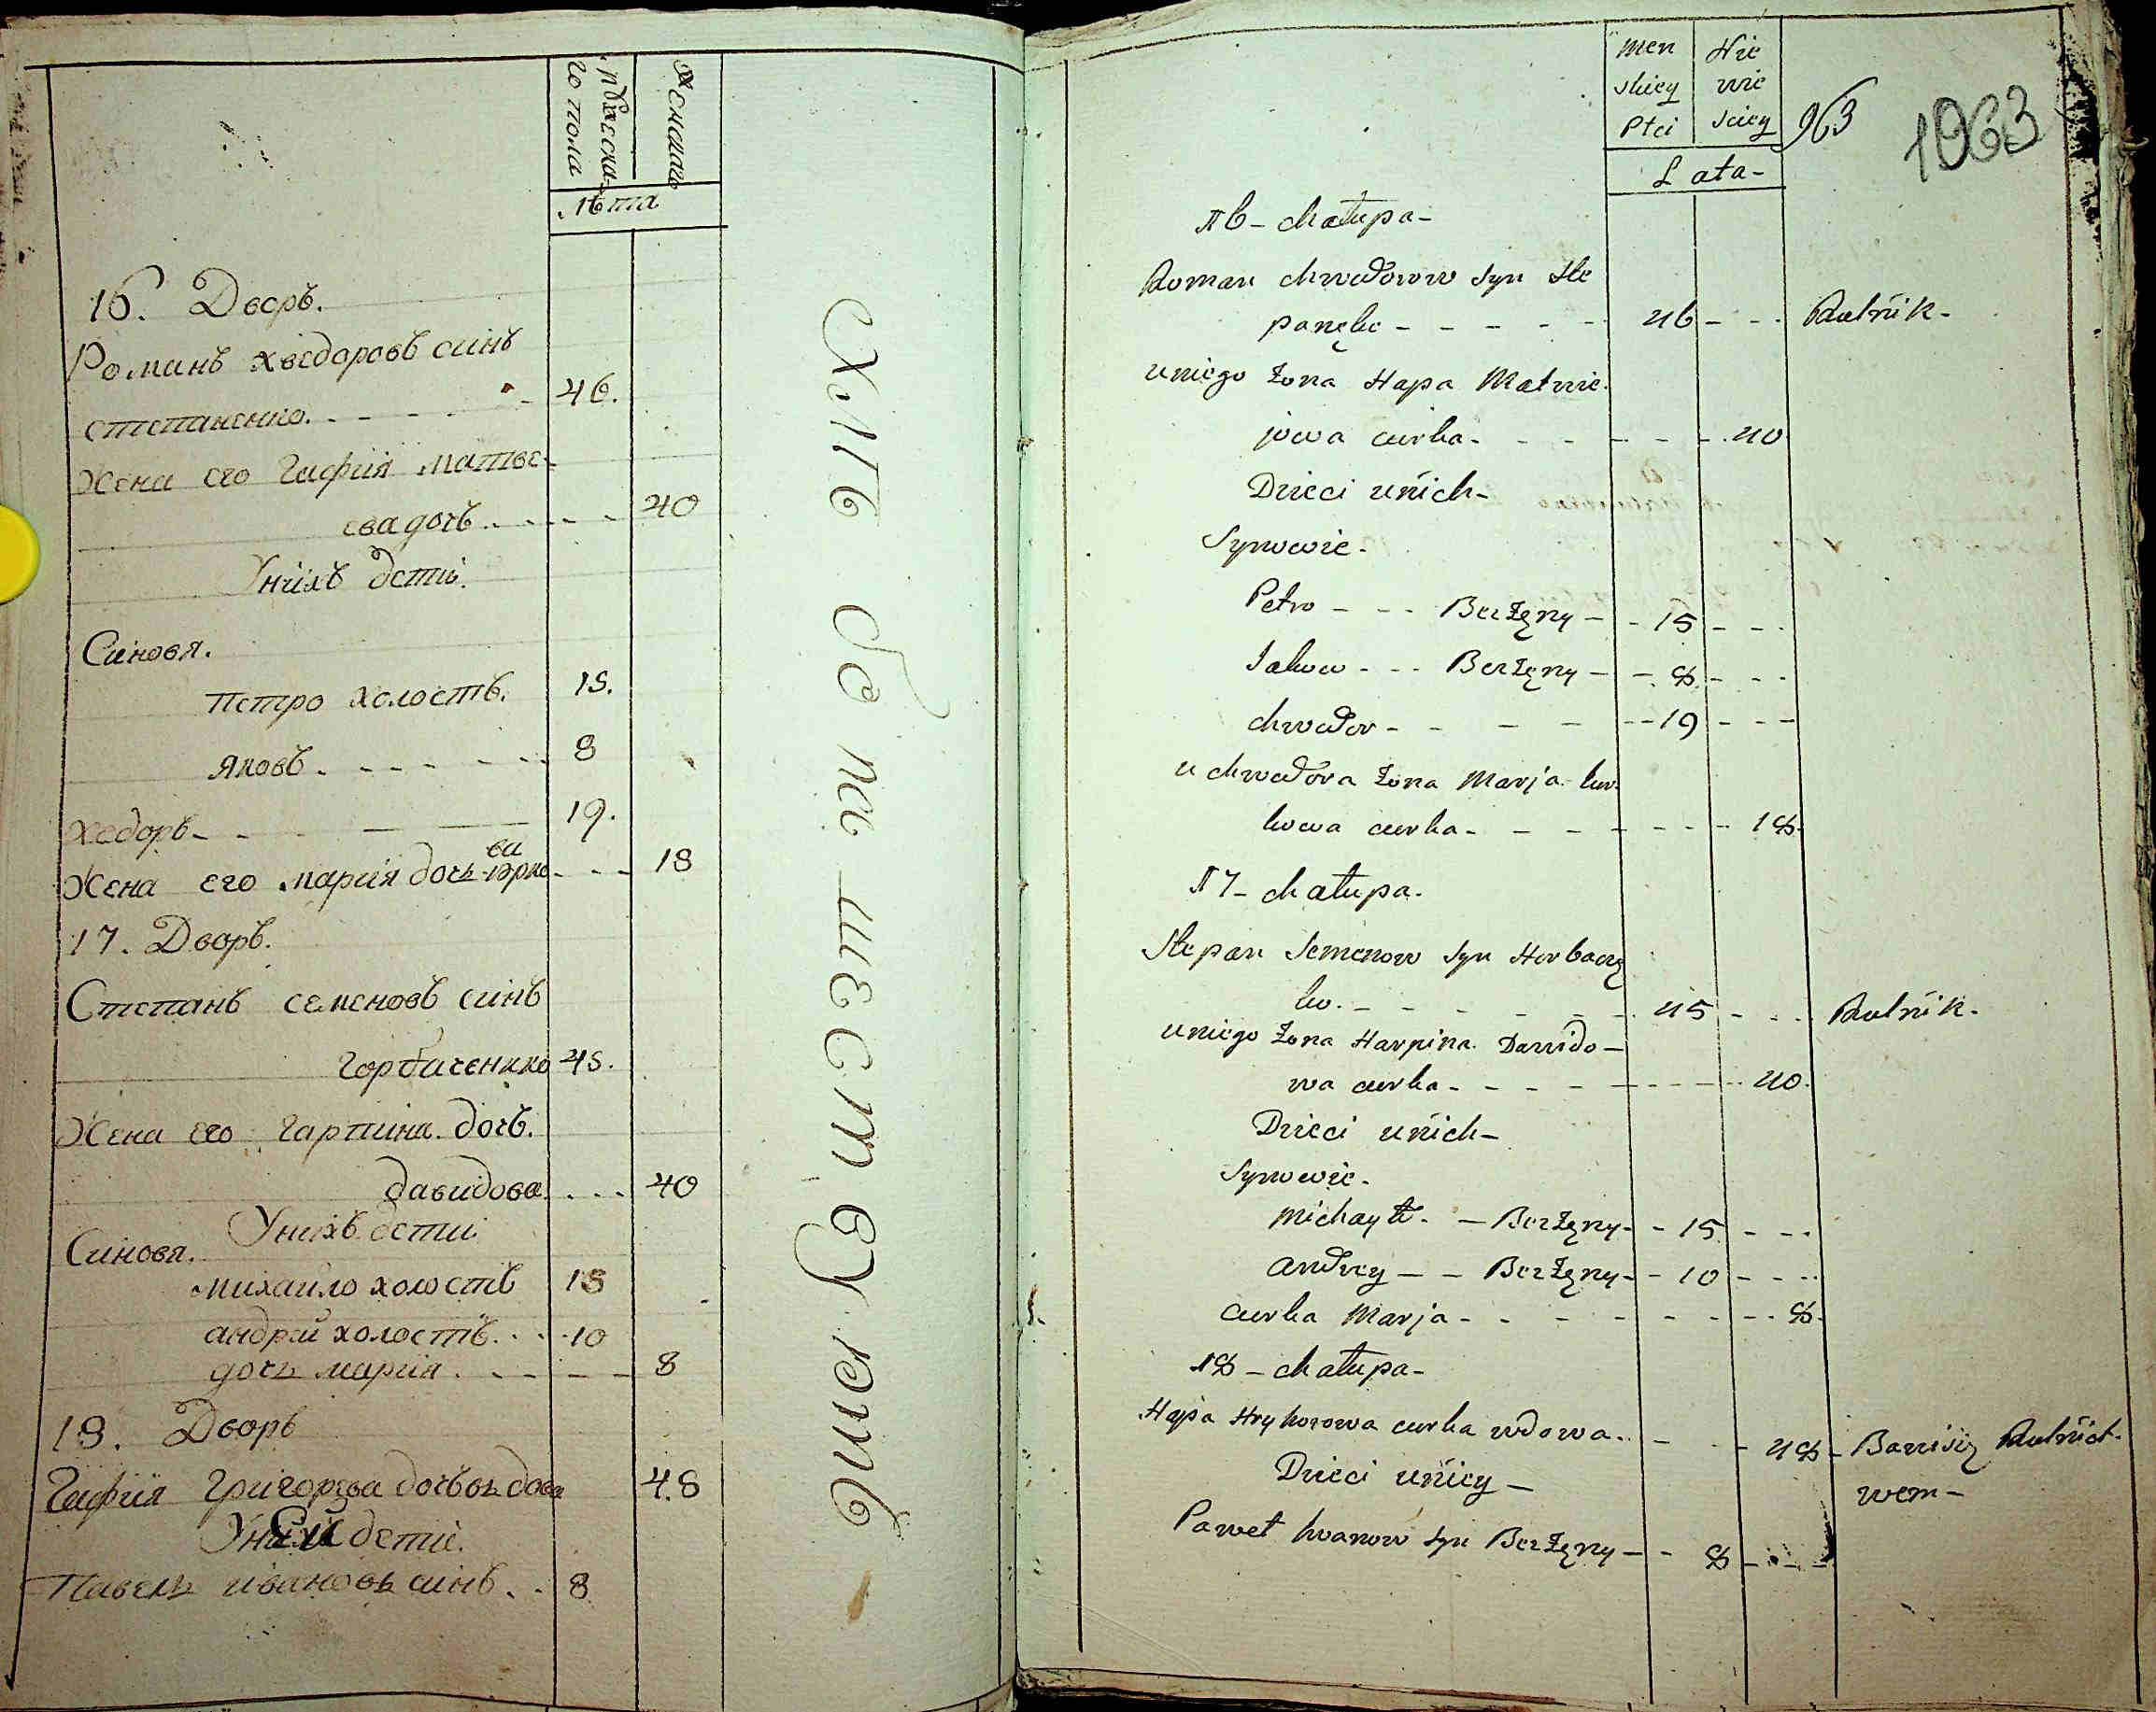 мужеска-
го пола
женскаго
лѣта
16. Дворъ.
Романъ хведоровъ синъ
степаненко. 46.
Жена его Гафия матве-
ева дочъ 40
Унихъ дети.
Синовя.
петро холостъ. 15.
яковъ 8
хедоръ 19.
ва
Жена его мария дочь юрко 18
17. Дворъ.
Степанъ семеновъ синъ
горбаченико 45.
Жена его гарпина дочъ.
давидова 40
Унихъ дети
Синовя.
михаило холостъ 15
андрей холостъ 10
дочь мария 8
18. Дворъ
Гафия Григорева дочъ вьдова 48
Уней дети.
Павель ивановь синъ 8
men
skiey
Płci
Nie
wie
sciey
963
1063
Lata-
16- chałupa-
Roman chwedorow syn Ste
panęko - - - - - 46 - - - Rolnik-
uniego żona Hapa Matwie-
jowa curka - - - - - 40
Dzieci unich-
Synowie-
Petro - - - Bezżęny - - 15 - - -
Jakow - - - Bezżęny - - 8 - - -
chwedor - - - - - - 19 - - -
u chwedora żona Marja Jur-
kowa curka - - - - - - - 18
17- chałupa-
Stepan Semenow syn Horbaczę
ko. - - - - - - 45 - - - Rolnik.
uniego żona Harpina Dawido-
wa curka - - - - - - - 40
Dzieci unich-
Synowie-
Michayło - Bezżęny - - 15 - - -
Andrey - - Bezżęny - - 10 - - -
Curka Marja - - - - - - - 8
18- chałupa-
Hapa Hryhorowa curka wdowa - - - 48 - Bawisię Rolnict-
wem-
Dzieci uniey-
Paweł Iwanow syn Bezżęny - - 8 - - -